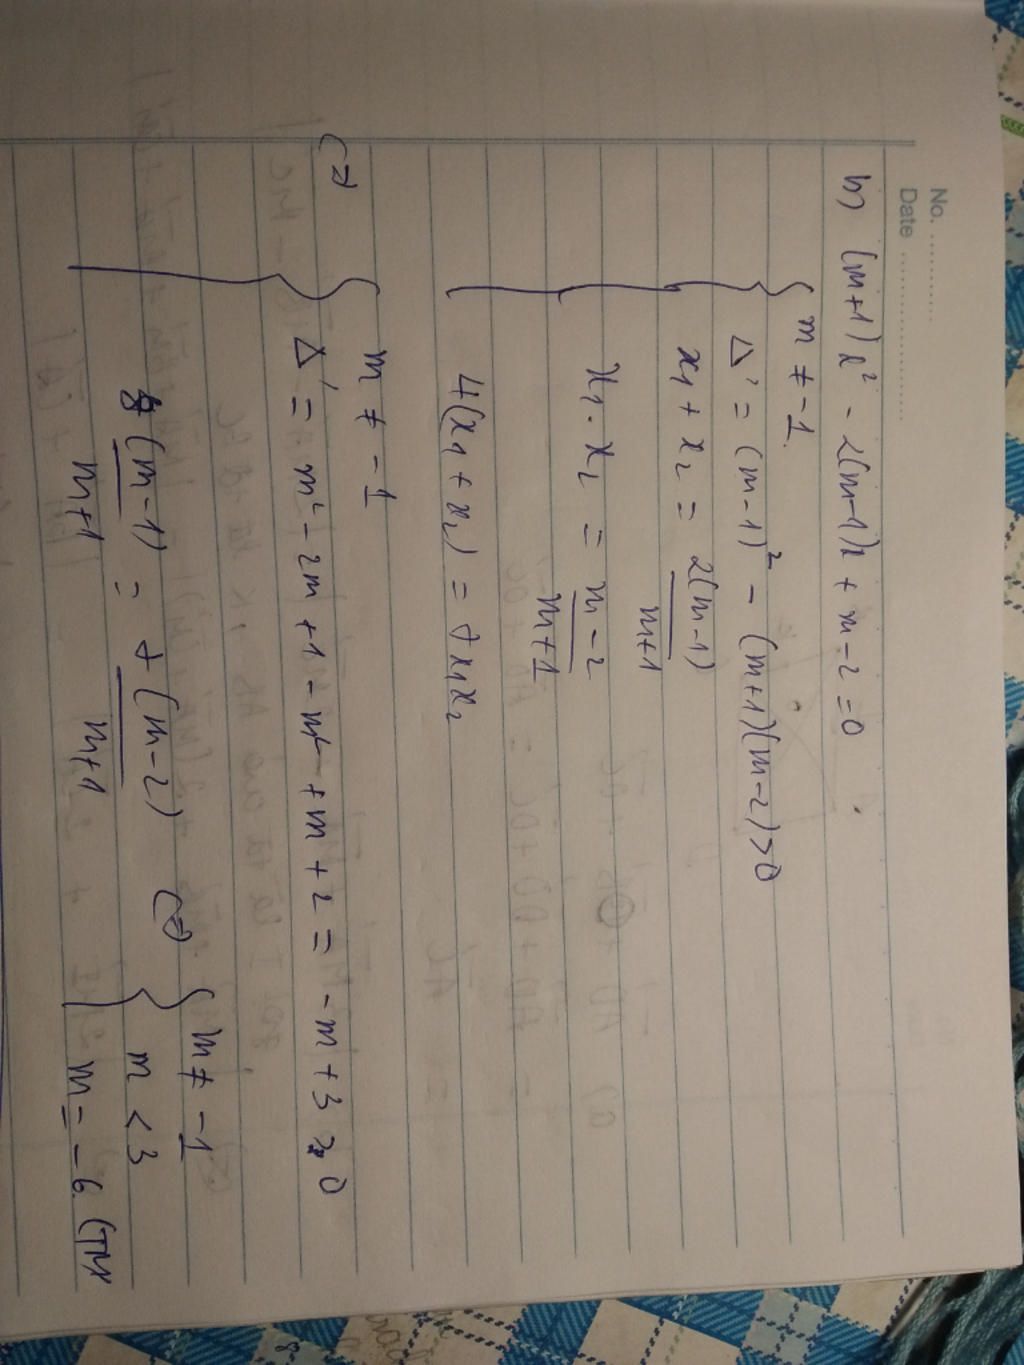 No. ............
Date ............
b) (m+1)x² - 2(m-1)x + m-2 = 0
{ m ≠ -1
Δ' = (m-1)² - (m+1)(m-2) > 0
x₁ + x₂ = 2(m-1)/m+1
x₁ . x₂ = m-2/m+1
4(x₁ + x₂) = 7x₁x₂
<=> { m ≠ -1
Δ' = m² - 2m + 1 - m² + m + 2 = -m + 3 > 0
8(m-1)/m+1 = 7(m-2)/m+1 <=> { m ≠ -1
m < 3
m = -6 (TM)